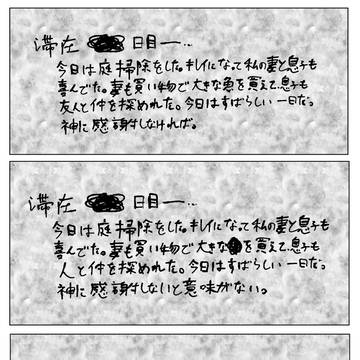 滞在 日目ー…
今日は庭掃除をした。キレイになって私の妻と息子も
喜んでた。妻も買い物で大きな魚を買えて、息子も
友人と仲を深めれた。今日はすばらしい一日だ。
神に感謝しなければ。
滞在 日目ー…
今日は庭掃除をした。キレイになって私の妻と息子も
喜んでた。妻も買い物で大きな を買えて、息子も
人と仲を深めれた。今日はすばらしい一日だ。
神に感謝しないと意味がない。